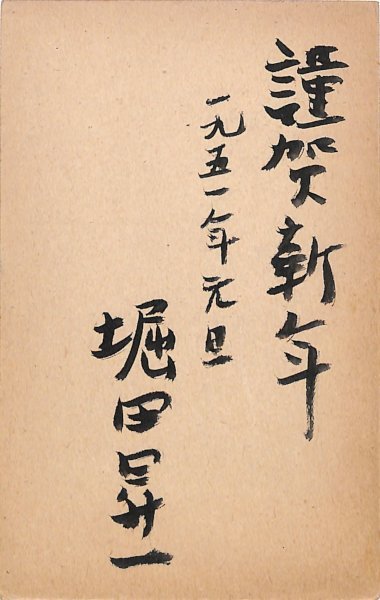 謹賀新年
一九五一年元旦
堀田昇一